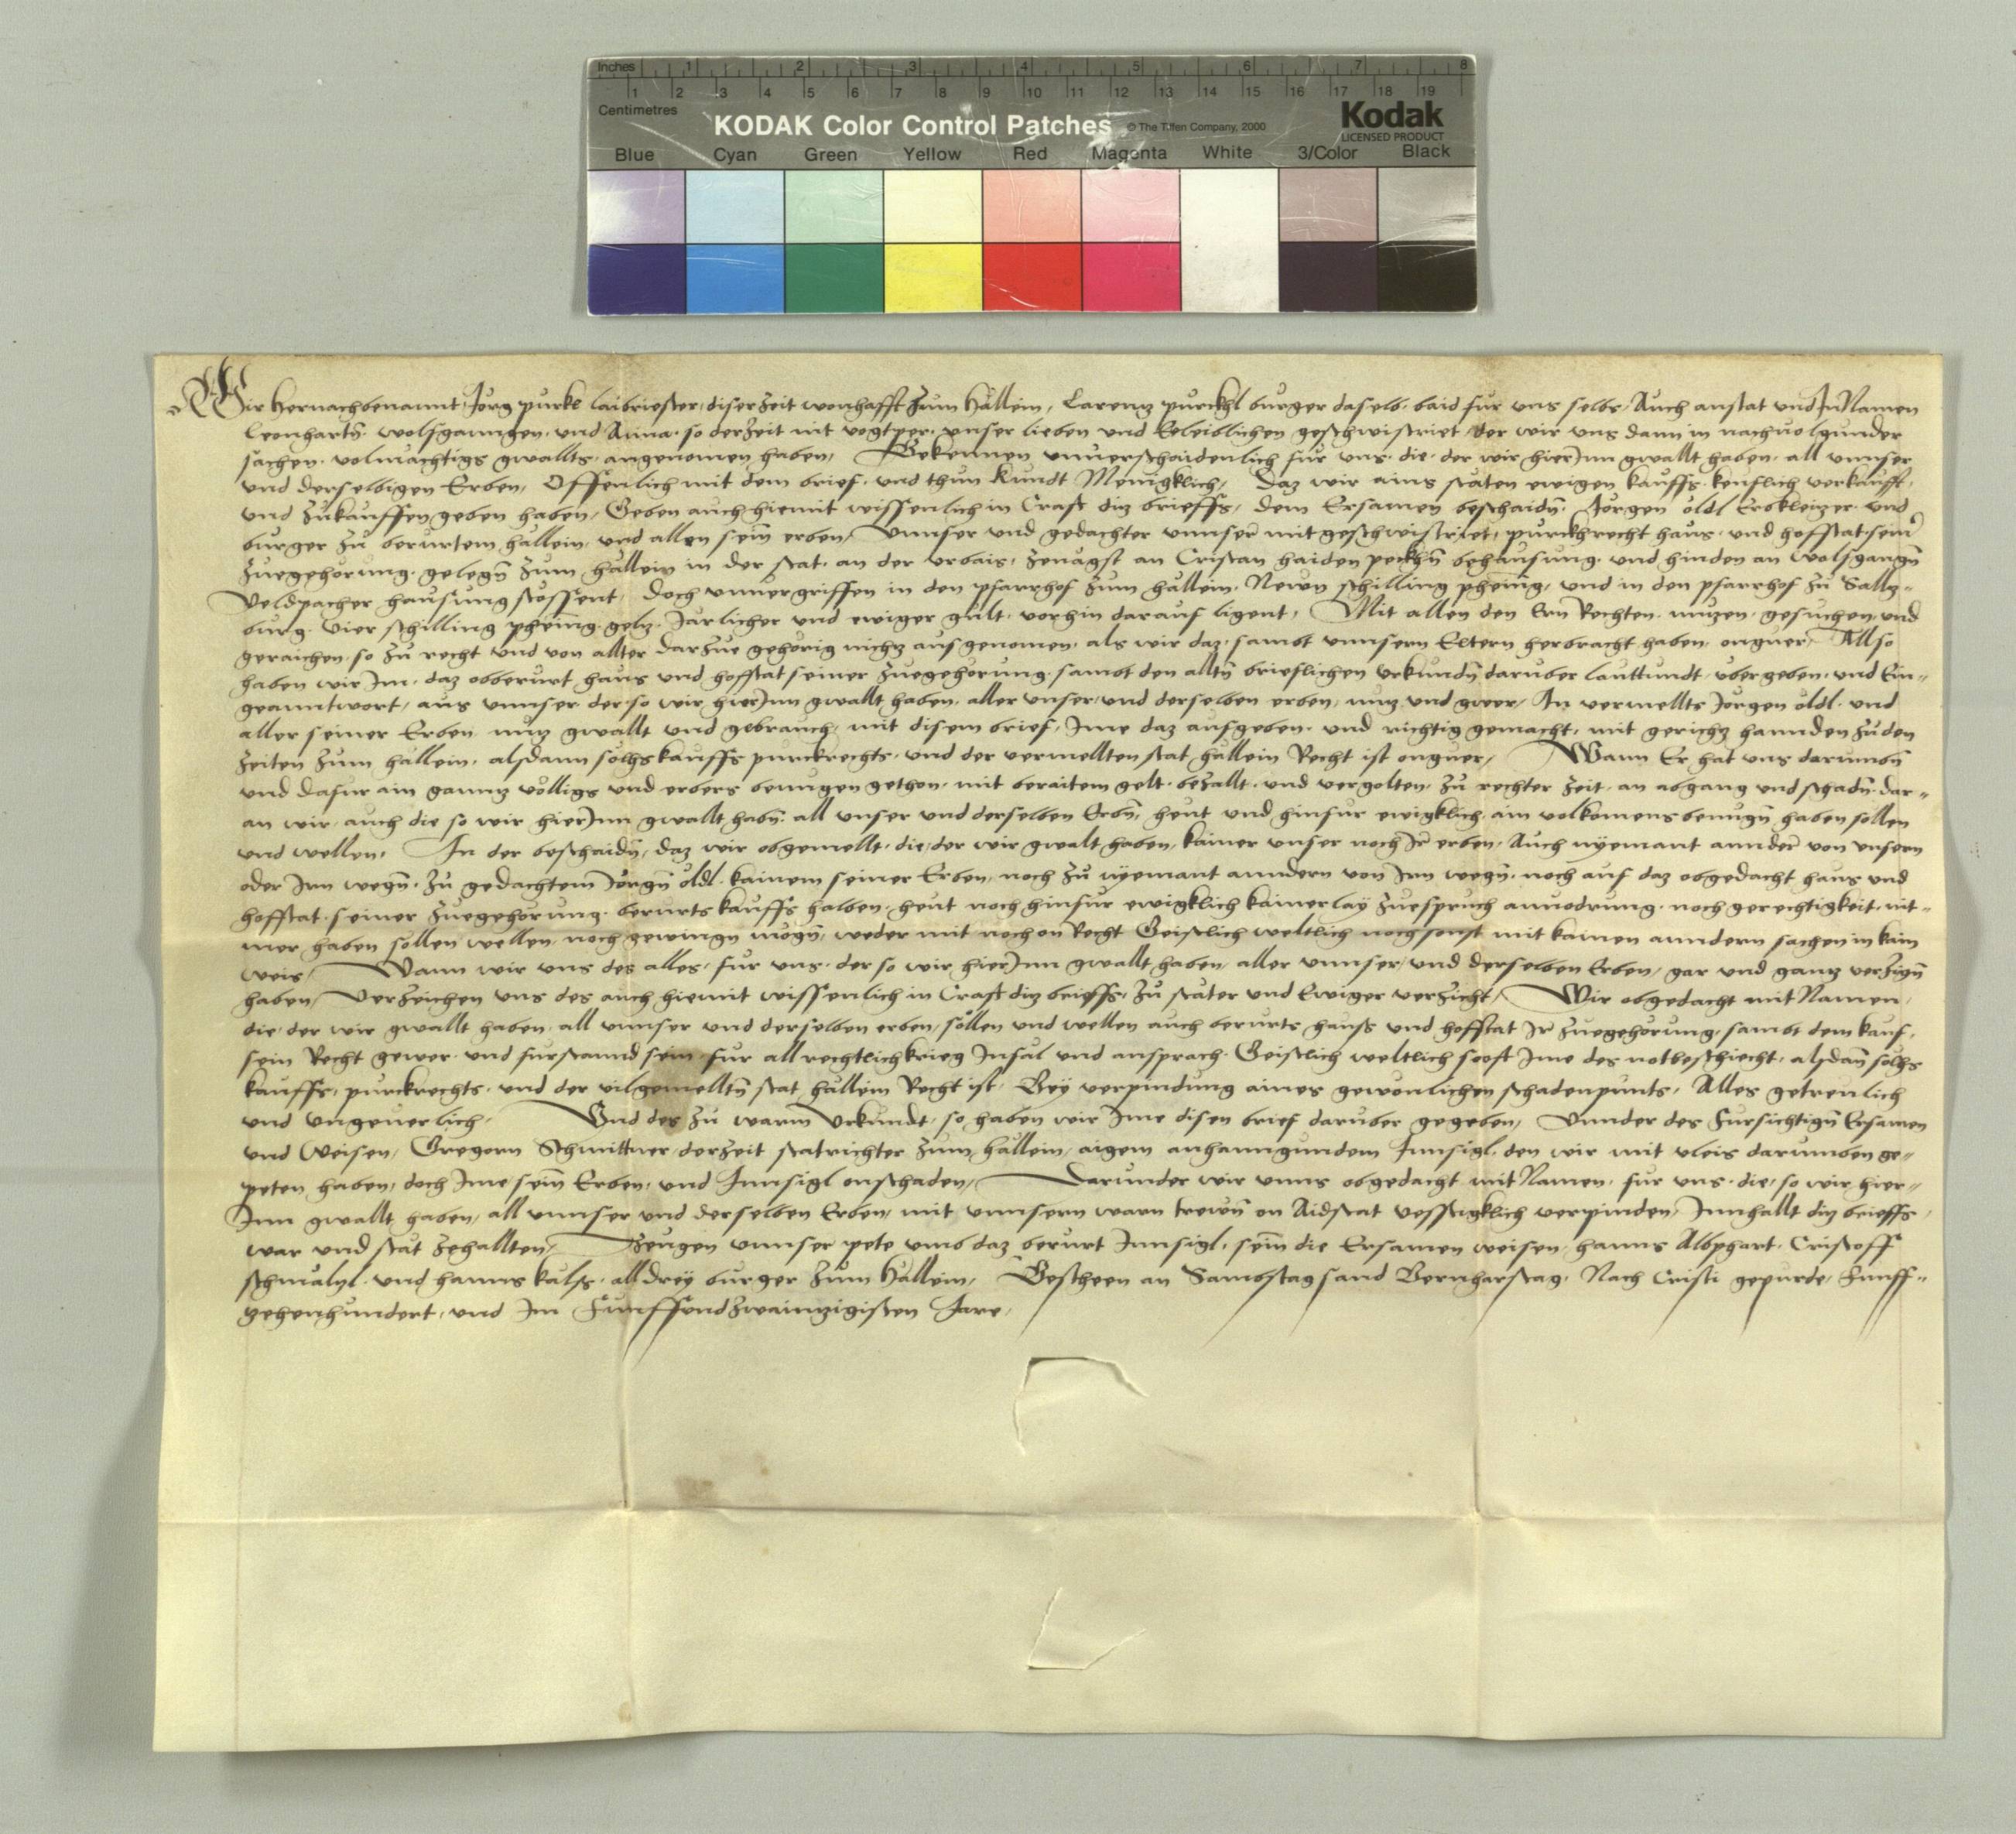 Inches 1 2 3 4 5 6 7 8
1 2 3 4 5 6 7 8 9 10 11 12 13 14 15 16 17 18 19
Centimetres
KODAK Color Control Patches © The Tiffen Company, 2000
Kodak
LICENSED PRODUCT
Blue Cyan Green Yellow Red Magenta White 3/Color Black
Wir hernachbenannt Jörg purkl laibriester diser zeit wonhafft zum Hällein, Larentz purckhl burger daselb, baid fur uns selbs, Auch anstat und In Namen
Leonhartn̄, wolfganngen, und Anna, so derzeit nit vogtper, unser lieben und Eeleiblichen geschwistriet, der wir uns dann in nachuolgunder
sachen, volmächtigs gwallts, angenomen haben, Bekennen unuerschaidenlich fur uns, die, der wir hierInn gwallt haben, all unnser
und derselbigen Erben, Offenlich mit dem brief, und thun kundt Menigklich, Daz wir ains stäten ewigen kauffs, keuflich verkaufft,
und zukauffen geben haben, Geben auch hiemit wissenlich in Crafft ditz brieffs, dem Ersamen beschaidn̄, Jörgen öldl Erbkleizer, und
burger zu berurtem hällein, und allen sein̄ erben, Unnser und gedachter unnser mitgeschwistriet, purckhrecht haus, und hofstat seiner
zuegehörung, gelegn̄ zum hällein in der stat, an der urbais, zenägst an Cristan haiden peckhn̄ behausung, und hinden an wolfgangn̄
Veldpacher hausung stossent, Doch unuergriffen in den pfarrhof zum hällein, Newn schilling phening, und in den pfarrhof zu Saltz-
burg, vier schilling phening gelz, Järlicher und ewiger gült, vorhin darauf ligent, Mit allen den Ern Rechten, nutzen, gesuchen, und
geraichen, so zu recht und von allter darzue gehörig nichtz ausgenomen, als wir daz, sambt unnsern Eltern herbracht haben, onguer, Allso
haben wir Im, daz obberurt haus und hofstat seiner zuegehörung, sambt den alltn̄ brieflichen Urkundn̄ daruber lauttundt, ubergeben, und Ein-
geanntwort, aus unnser, der, so wir hierInn gwallt haben, aller unser, und derselben erben, nutz und gwer, In vermellts Jörgen öldl, und
aller seiner Erben, nutz gwallt und gebrauch, mit disem brief, Ime daz aufgeben, und richtig gemacht, mit gerichtz hannden zu den
zeiten zum hällein, alsdann sölhs kauffs purckrechts, und der vermellten stat hällein Recht ist onguer, Wann Er hat uns darumbn̄
und dafur ain ganntz völligs und erbers benugen gethon, mit beraitem gelt, bezallt, und vergolten, zu rechter zeit, an abgang und schadn̄, dar-
an wir, auch die so wir hierInn gwallt habn̄, all unser und derselben Erbn̄, heut und hinfur ewigklich, ain volkomens benugn̄ haben söllen
und wellen, In der beschaidn̄, daz wir obgemellt, die, der wir gwalt haben, kainer unser noch Ir erben, Auch nyemant annder von unsern
oder Irn wegn̄, zu gedachtem Jörgn̄ öldl, kainem seiner Erben, noch zu nyemant anndern von Irn wegn̄, noch auf daz obgedacht haus und
hofstat, seiner zuegehörung, berurts kauffs halben, heut noch hinfur ewigklich kainerlay zuespruch anuodrung, noch gerechtigkeit, nit-
mer haben söllen wellen, noch gewingn mögn̄, weder mit noch on Recht Geistlich weltlich noch sonst mit kainen anndern sachen in kain
weis, Wann wir uns des alles, fur uns, der so wir hierInn gwallt haben, aller unnser, und derselben Erben, gar und gantz verzign̄
haben, Verzeichen uns des auch hiemit wissenlich in Crafft ditz brieffs, zu stäter und Ewiger verzicht, Wir obgedacht mit Namen,
die, der wir gwallt haben, all unnser und derselben erben, söllen und wellen auch berurts hauss und hofstat Ir zuegehörung, sambt dem kauf,
sein Recht gewer, und furstannd sein, fur all rechtlich krieg Infäl und ansprach, Geistlich weltlich sooft Ime des notbeschiecht, alsdan̄ sölhs
kauffs, purckrechts, und der vilgemelltn̄ stat hällein Recht ist, Bey verpindung aines gewönlichen schadenpunts, Alles getreulich
und ungeuerlich, Und des zu warm Urkundt, so haben wir Ime disen brief daruber gegeben, Unnder des Fursichtign̄ Ersamen
und Weisen, Gregorn Schmittner, derzeit statrichter zum hällein, aigem anhanngundem Innsigl, den wir mit vleis darumben ge-
peten haben, doch Ime sein̄ Erben, und Innsigl onschaden, Darunder wir unns obgedacht mit Namen, fur uns, die, so wir hier-
Inn gwallt haben, all unnser und derselben Erben, mit unnsern warn trewn̄ on Aidstat vesstigklich verpinden, Innhallt ditz brieffs,
war und stät zehallten, Zeugen unnser pete umb daz berurt Innsigl, sein̄ die Ersamen weisen, hanns Albphart, Cristoff
schmälzl, und hanns kalss, all drey burger zum hällein, Bescheen an Sambstag sand Bernharstag, Nach Cristi gepurde, Funff-
zehenhundert, und Im Funffundzwaintzigisten Jare,